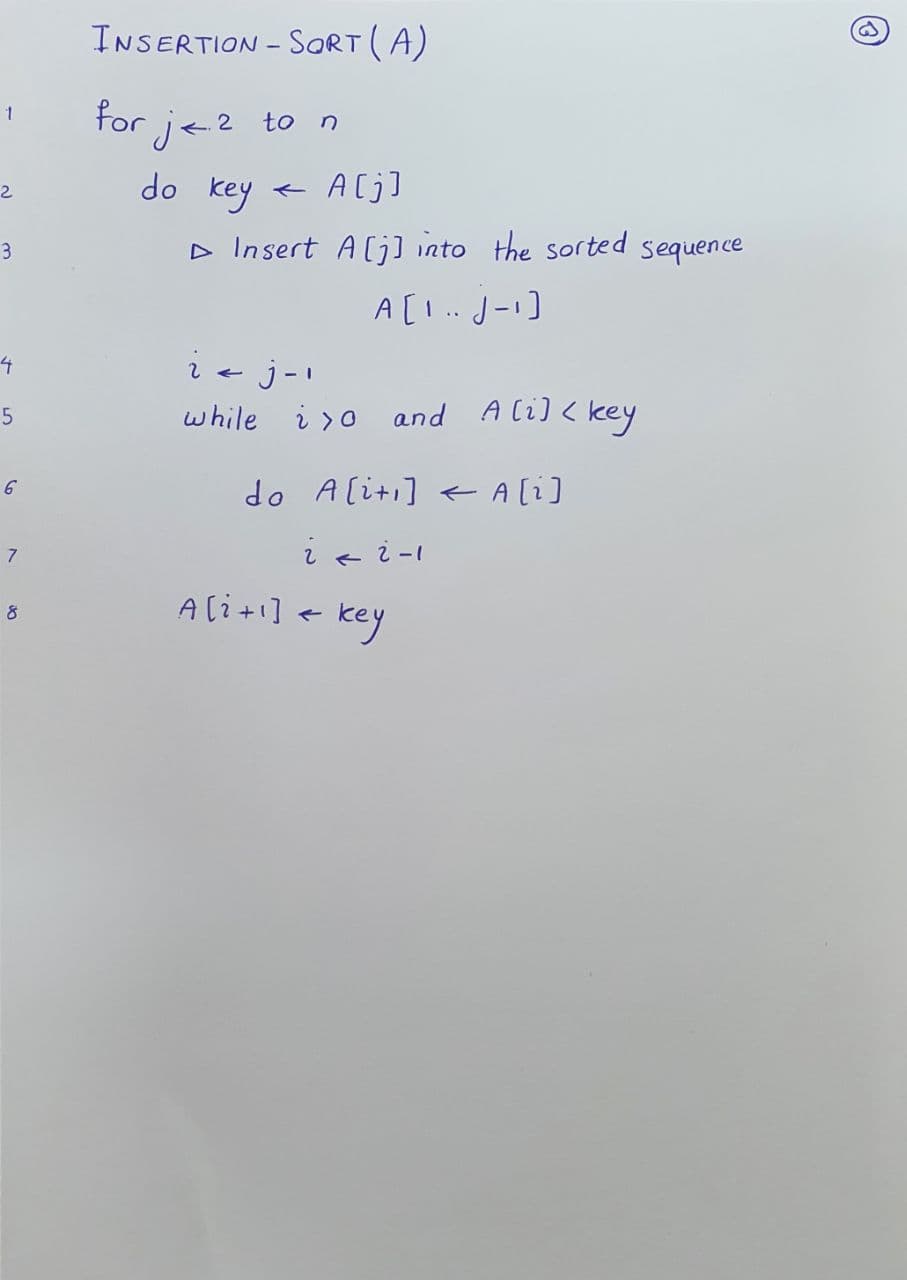 INSERTION - SORT (A)
1 for j ← 2 to n
2 do key ← A[j]
3 ▷ Insert A[j] into the sorted sequence
A[1 .. j-1]
4 i ← j-1
5 while i > 0 and A[i] < key
6 do A[i+1] ← A[i]
7 i ← i-1
8 A[i+1] ← key